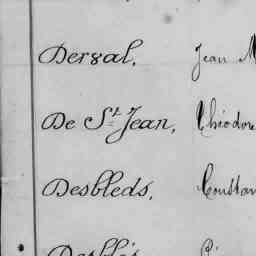 Derval, Jean
De St Jean, Théodore
Desbleds, Constan